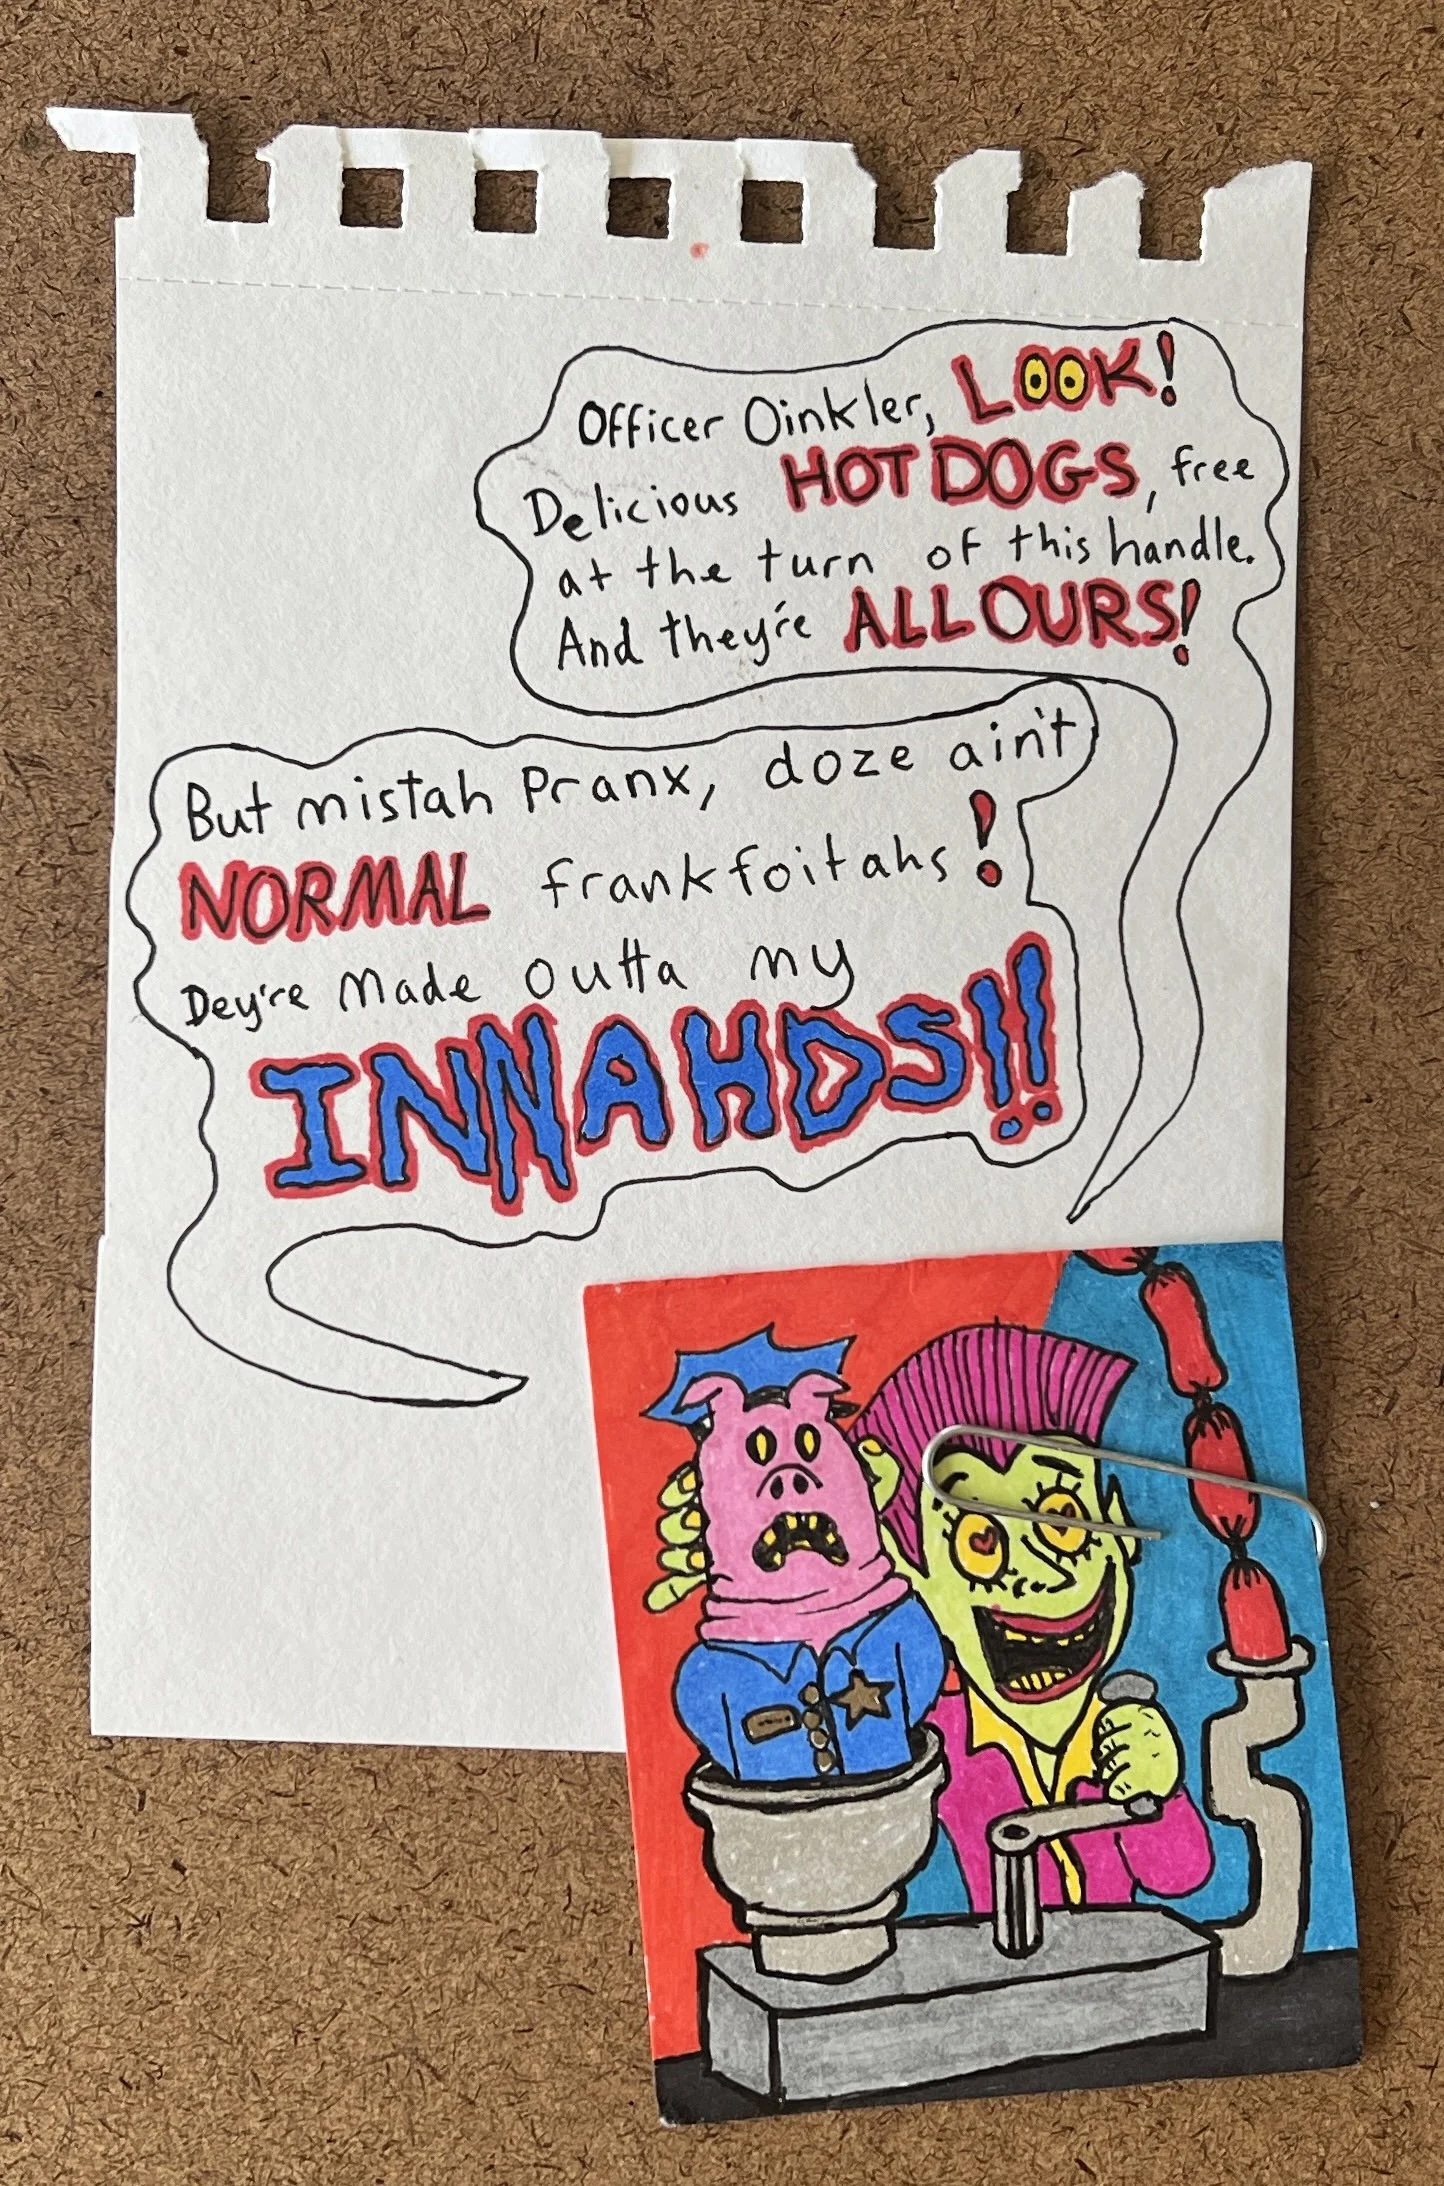 Officer Oinkler, LOOK!
Delicious HOT DOGS, free
at the turn of this handle.
And they're ALL OURS!
But mistah Pranx, doze ain't
NORMAL frankfoitahs!
Dey're made outta my
INNAHDS!!